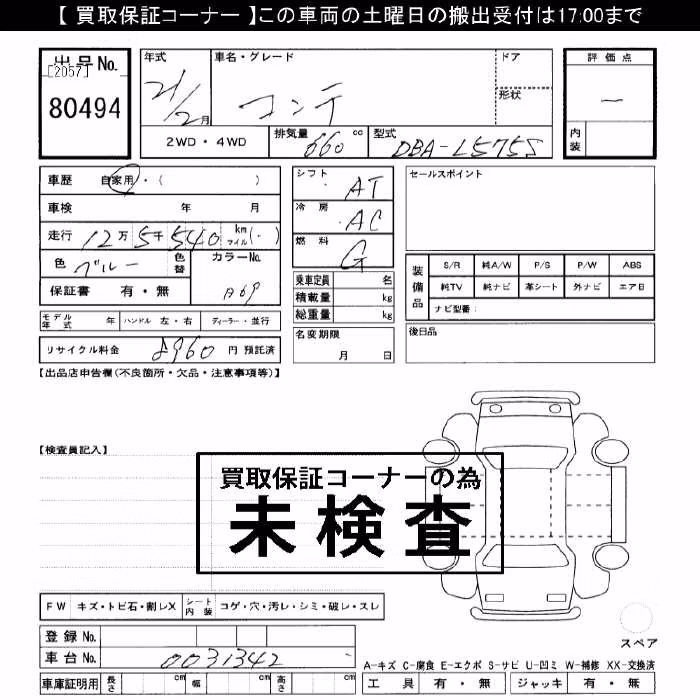 【 買取保証コーナー 】この車両の土曜日の搬出受付は17:00まで
出品No.
[2057]
80494
年式
21/2月
車名・グレード
コンテ
ドア
形状
2WD・4WD
排気量 660 cc
型式 DBA-L575S
評価点
一
内装
車歴 自家用・( )
車検 年 月
走行 12万5千540 km マイル(・)
色 ブルー 色替 カラーNo.
B69
保証書 有・無
モデル年式 年 ハンドル 左・右 ディーラー・並行
リサイクル料金 8960 円 預託済
シフト AT
冷房 AC
燃料 G
乗車定員 名
積載量 kg
総重量 kg
名変期限
月 日
セールスポイント
装備品
S/R 純A/W P/S P/W ABS
純TV 純ナビ 革シート 外ナビ エアB
ナビ型番:
後日品
【出品店申告欄(不良箇所・欠品・注意事項等)】
【検査員記入】
買取保証コーナーの為
未検査
FW キズ・トビ石・割レX シート内装 コゲ・穴・汚レ・シミ・破レ・スレ
登録No.
車台No. 0031342
車庫証明用 長さ cm 幅 cm 高さ cm
スペア
A-キズ C-腐食 E-エクボ S-サビ U-凹ミ W-補修 XX-交換済
工具 有・無 ジャッキ 有・無